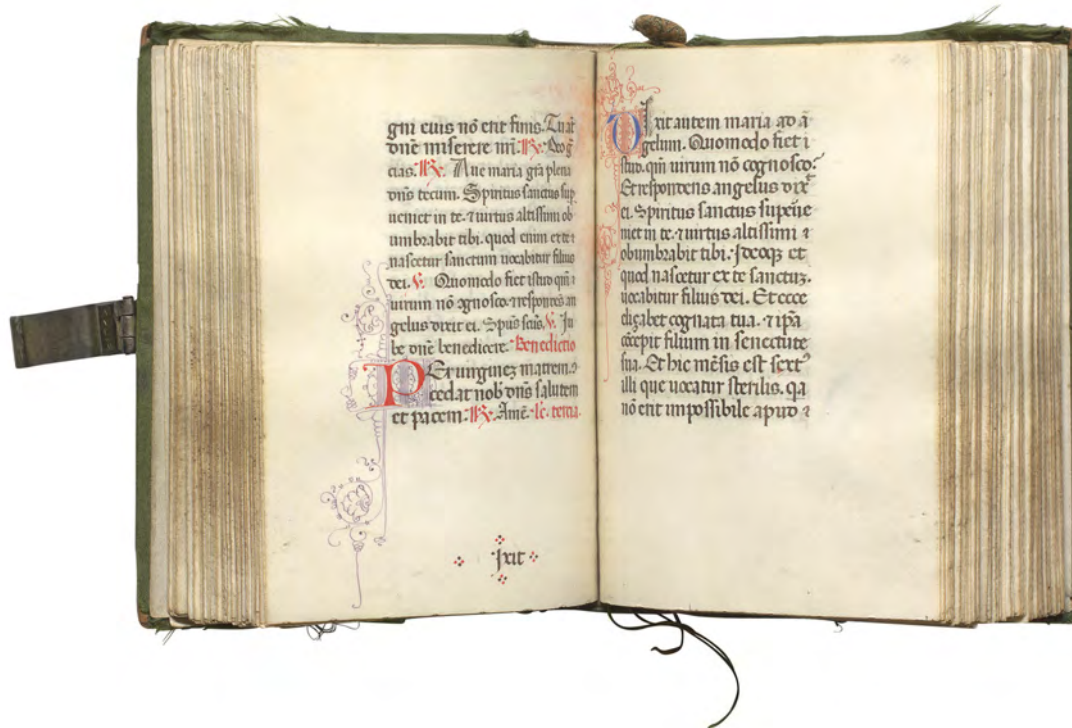 gni euis nō erit finis. Tu aūt
dn̄e miserere nr̄i. ℟. Deo gr̄
cias. ℟. Aue maria gr̄a plena
dn̄s tecum. Spiritus sanctus sup
ueniet in te. ⁊ uirtus altissimi ob
umbrabit tibi. quod enim ex te ⁊
nascetur sanctum uocabitur filius
dei. ℣. Quomodo fiet istud qm̄ ⁊
uirum nō ognosco. ⁊ respondēs an
gelus dixit ei. Sp̄us sc̄us. ℣. Iu
be dn̄e benedicere. Benedictio
Per uirginez matrem. ꝯ
cedat nob dn̄s salutem
et pacem. ℟. Amē. lc̄. tercia.
Ixit
Dixit autem maria ad ā
gelum. Quomodo fiet i
stud. qm̄ uirum nō cognosco?
Et respondens angelus dix̄
ei. Spiritus sanctus supēue
niet in te. ⁊ uirtus altissimi ⁊
obumbrabit tibi. Ideoqꝫ et
quod nascetur ex te sanctuz.
uocabitur filius dei. Et ecce
elizabet cognata tua. ⁊ ip̄a
cōcepit filium in senectute
sua. Et hic mēsis est sextꝰ
illi que uocatur sterilis. qa
nō erit impossibile apud ⁊